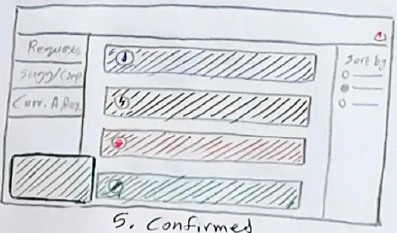 Requests
Sugg/Comp
Sort by
5. Confirmed